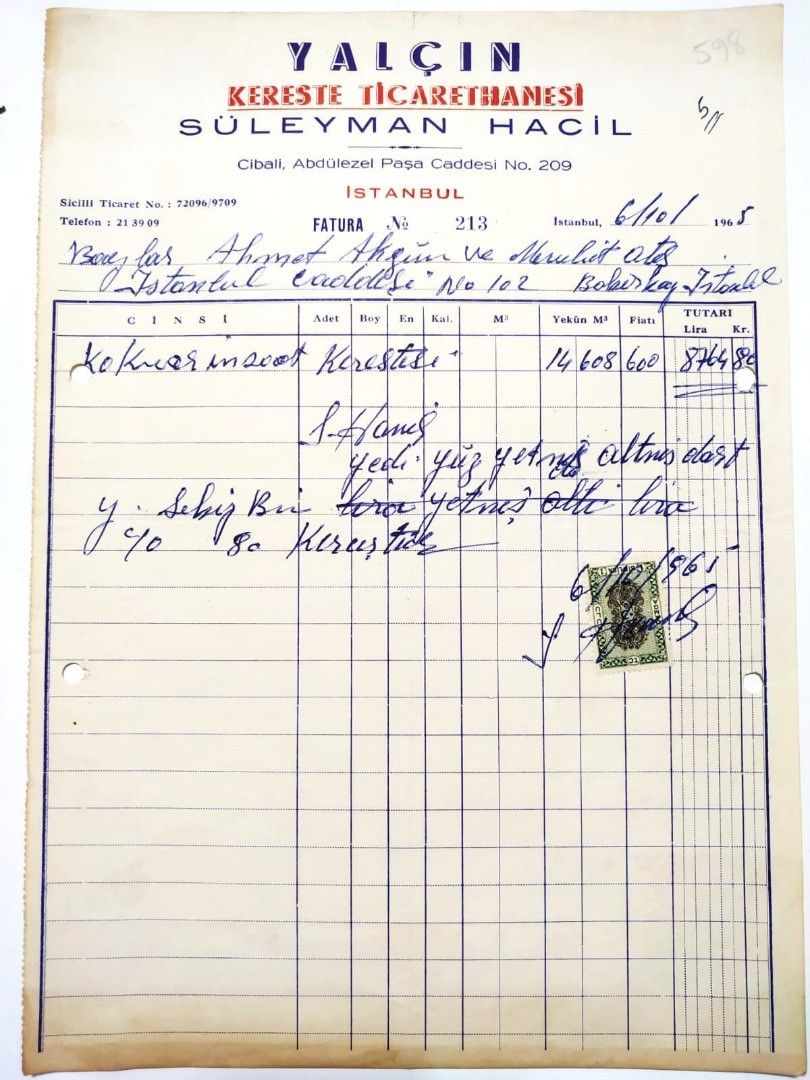 598
YALÇIN
KERESTE TİCARETHANESİ
5/1
SÜLEYMAN HACİL
Cibali, Abdülezel Paşa Caddesi No. 209
İSTANBUL
Sicilli Ticaret No. : 72096/9709
Telefon : 21 39 09
FATURA № 213
İstanbul, 6/10/ 1965
Baylar Ahmet Akgün ve
İstanbul Caddesi No 102 Bakırköy İstanbul
CİNSİ Adet Boy En Kal. M³ Yekûn M³ Fiatı TUTARI
Lira Kr.
inşaat Kerestesi 14 608 600 8764 80
yedi yüz altmış dört
y. Sekiz Bin lira yetmiş altı lira
80 Kuruştur
6/10/1965